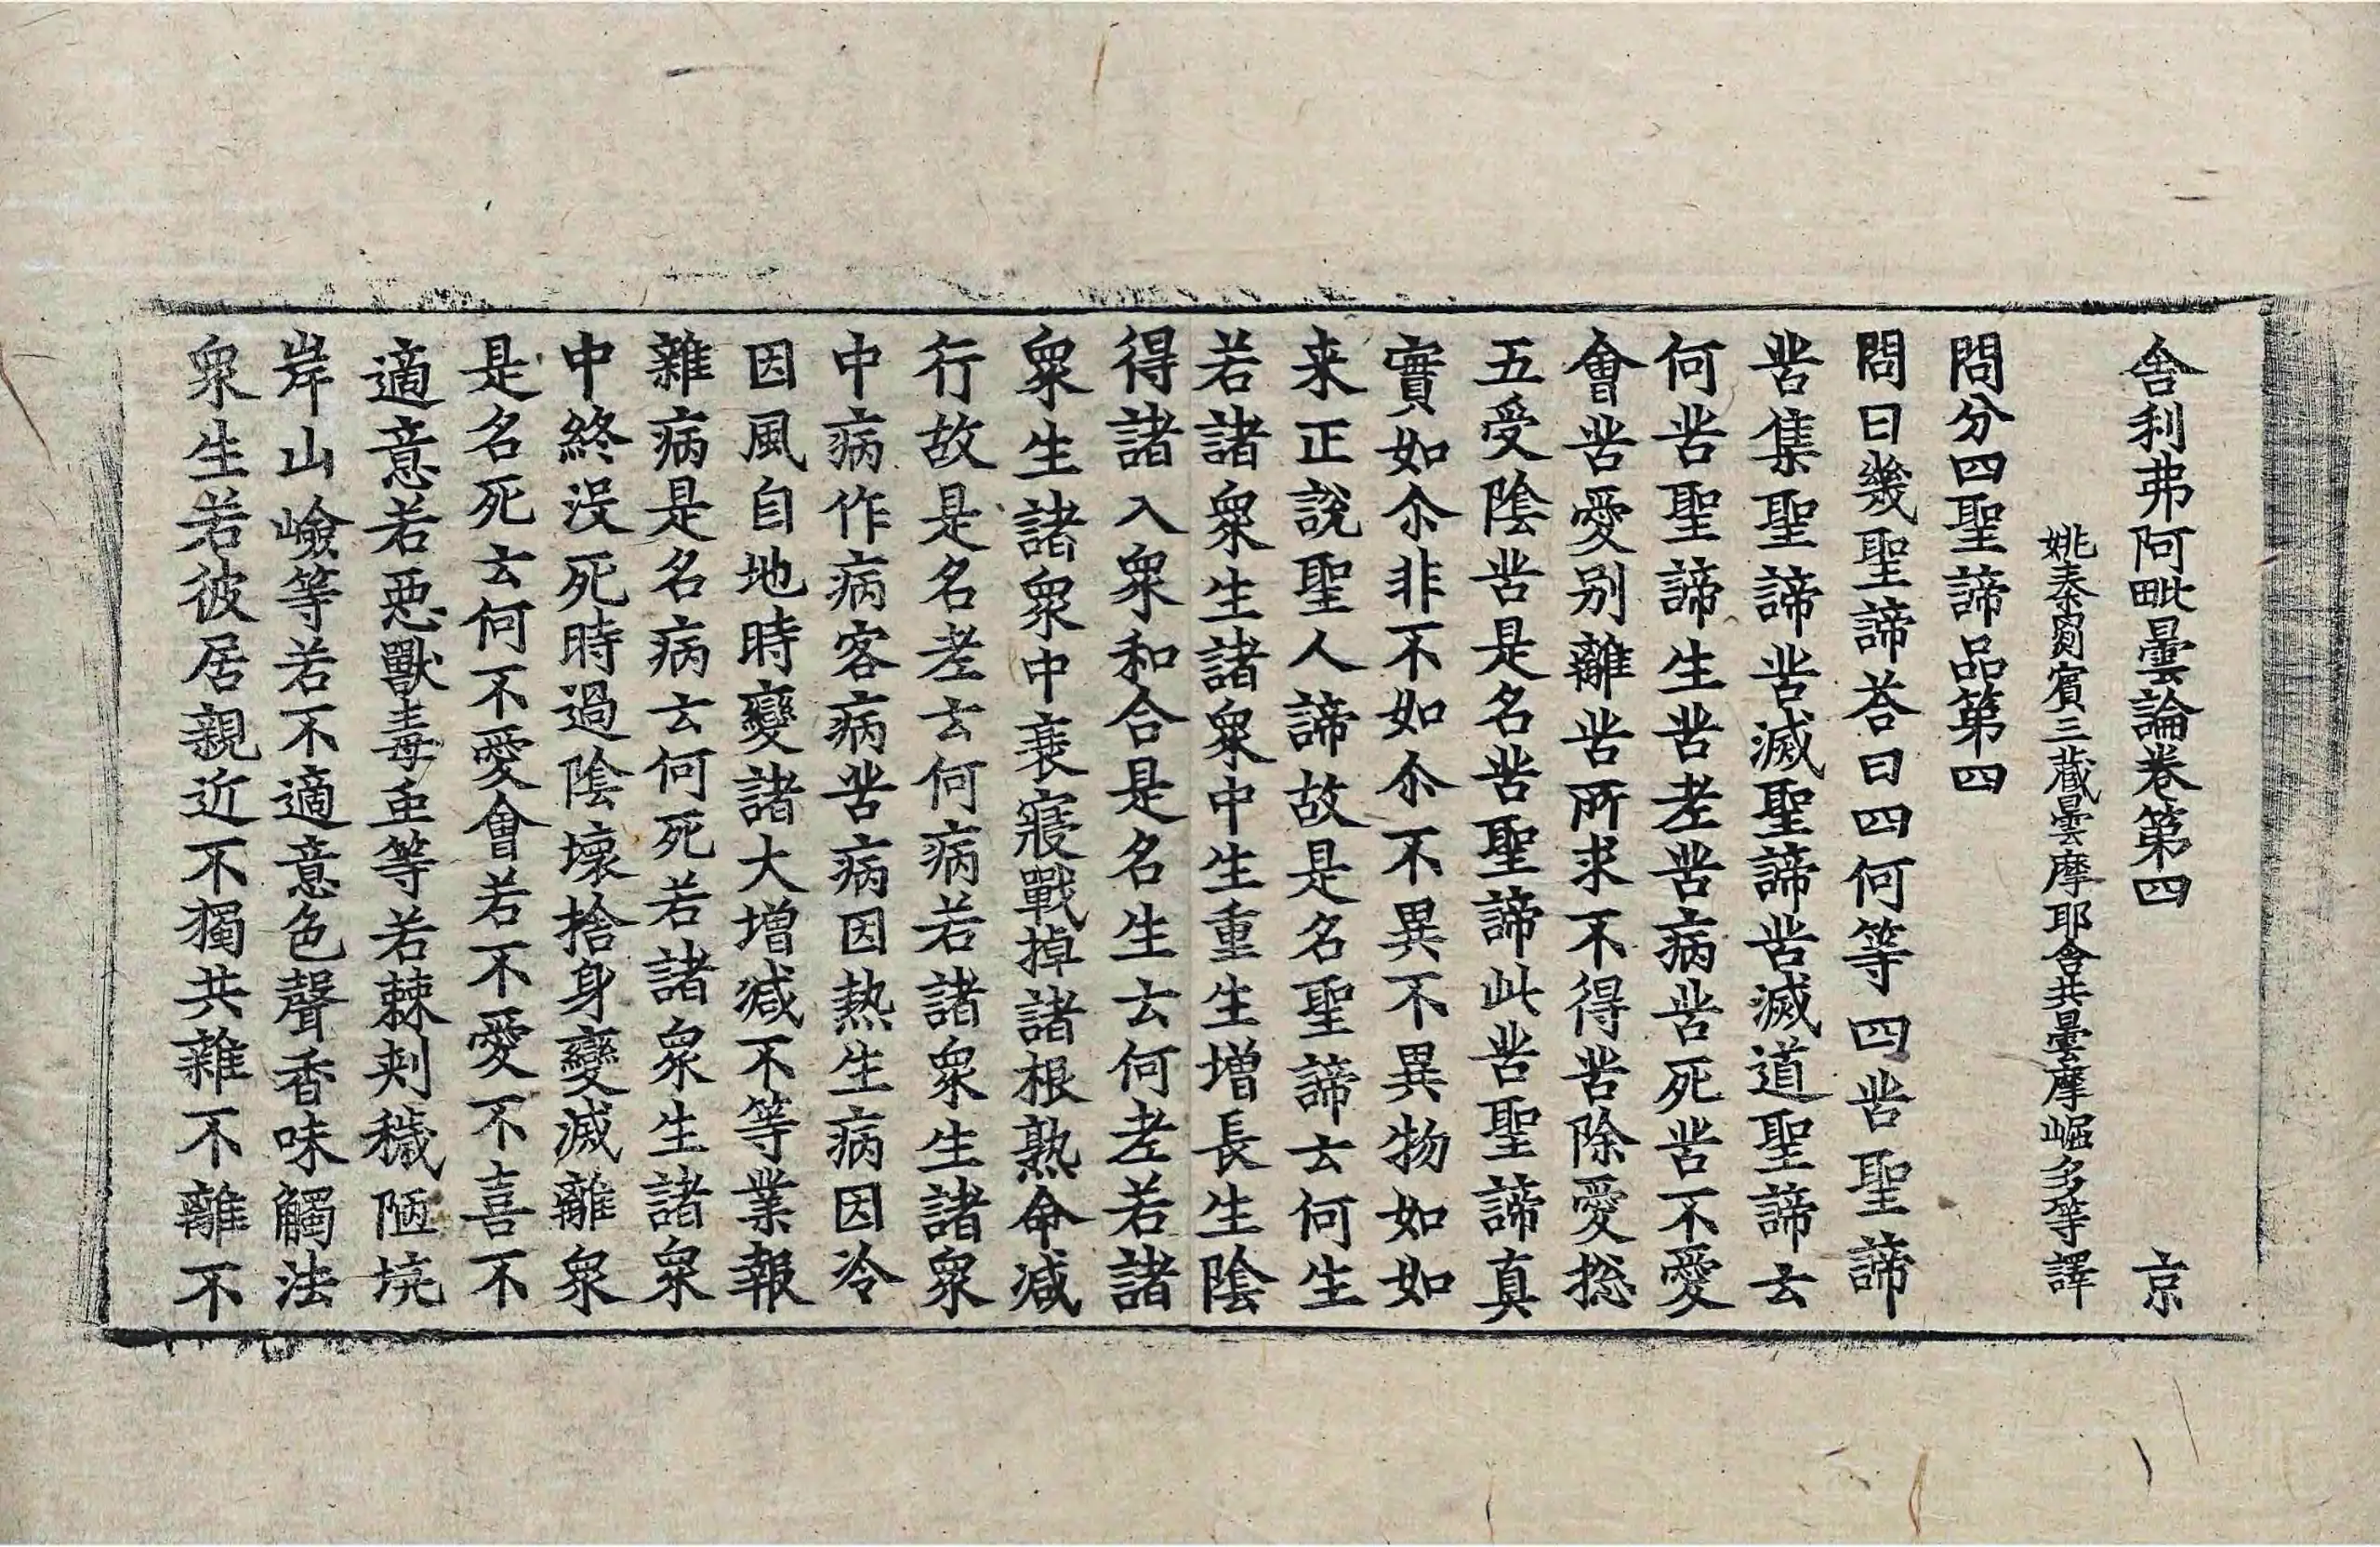 舎利弗阿毗曇論卷第四 京
姚秦罽賓三藏曇摩耶舍共曇摩崛多等譯
問分四聖諦品第四
問曰幾聖諦荅曰四何等四苦聖諦
苦集聖諦苦滅聖諦苦滅道聖諦云
何苦聖諦生苦老苦病苦死苦不愛
會苦愛別離苦所求不得苦除愛捴
五受陰苦是名苦聖諦此苦聖諦真
實如尒非不如尒不異不異物如如
来正說聖人諦故是名聖諦云何生
若諸衆生諸衆中生重生増長生陰
得諸入衆和合是名生云何老若諸
衆生諸衆中衰寢戰掉諸根熟命减
行故是名老云何病若諸衆生諸衆
中病作病客病苦病因熱生病因冷
因風自地時變諸大增减不等業報
雜病是名病云何死若諸衆生諸衆
中終没死時過陰壞捨身變滅離衆
是名死云何不愛會若不愛不喜不
適意若惡獸毒虫等若棘刺穢陋垸
岸山嶮等若不適意色聲香味觸法
衆生若彼居親近不獨共雜不離不